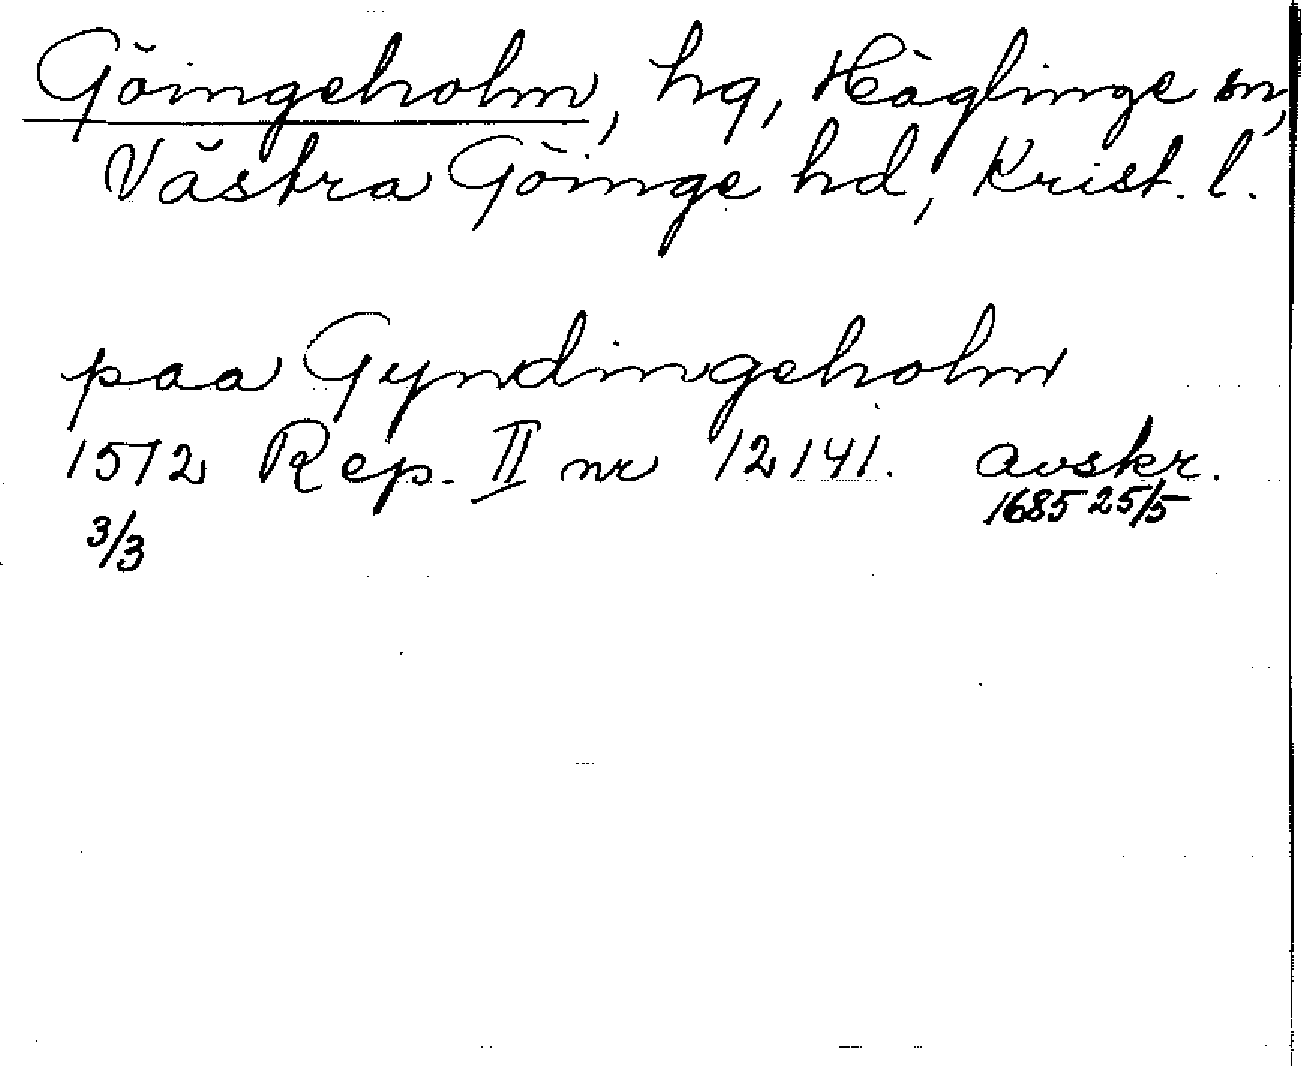 Göingeholm, hg, Häglinge sn,
Västra Göinge hd, Krist. l.
paa Gyndingeholm
1572 Rep. II nr 12141. avskr.
3/3 1685 25/5